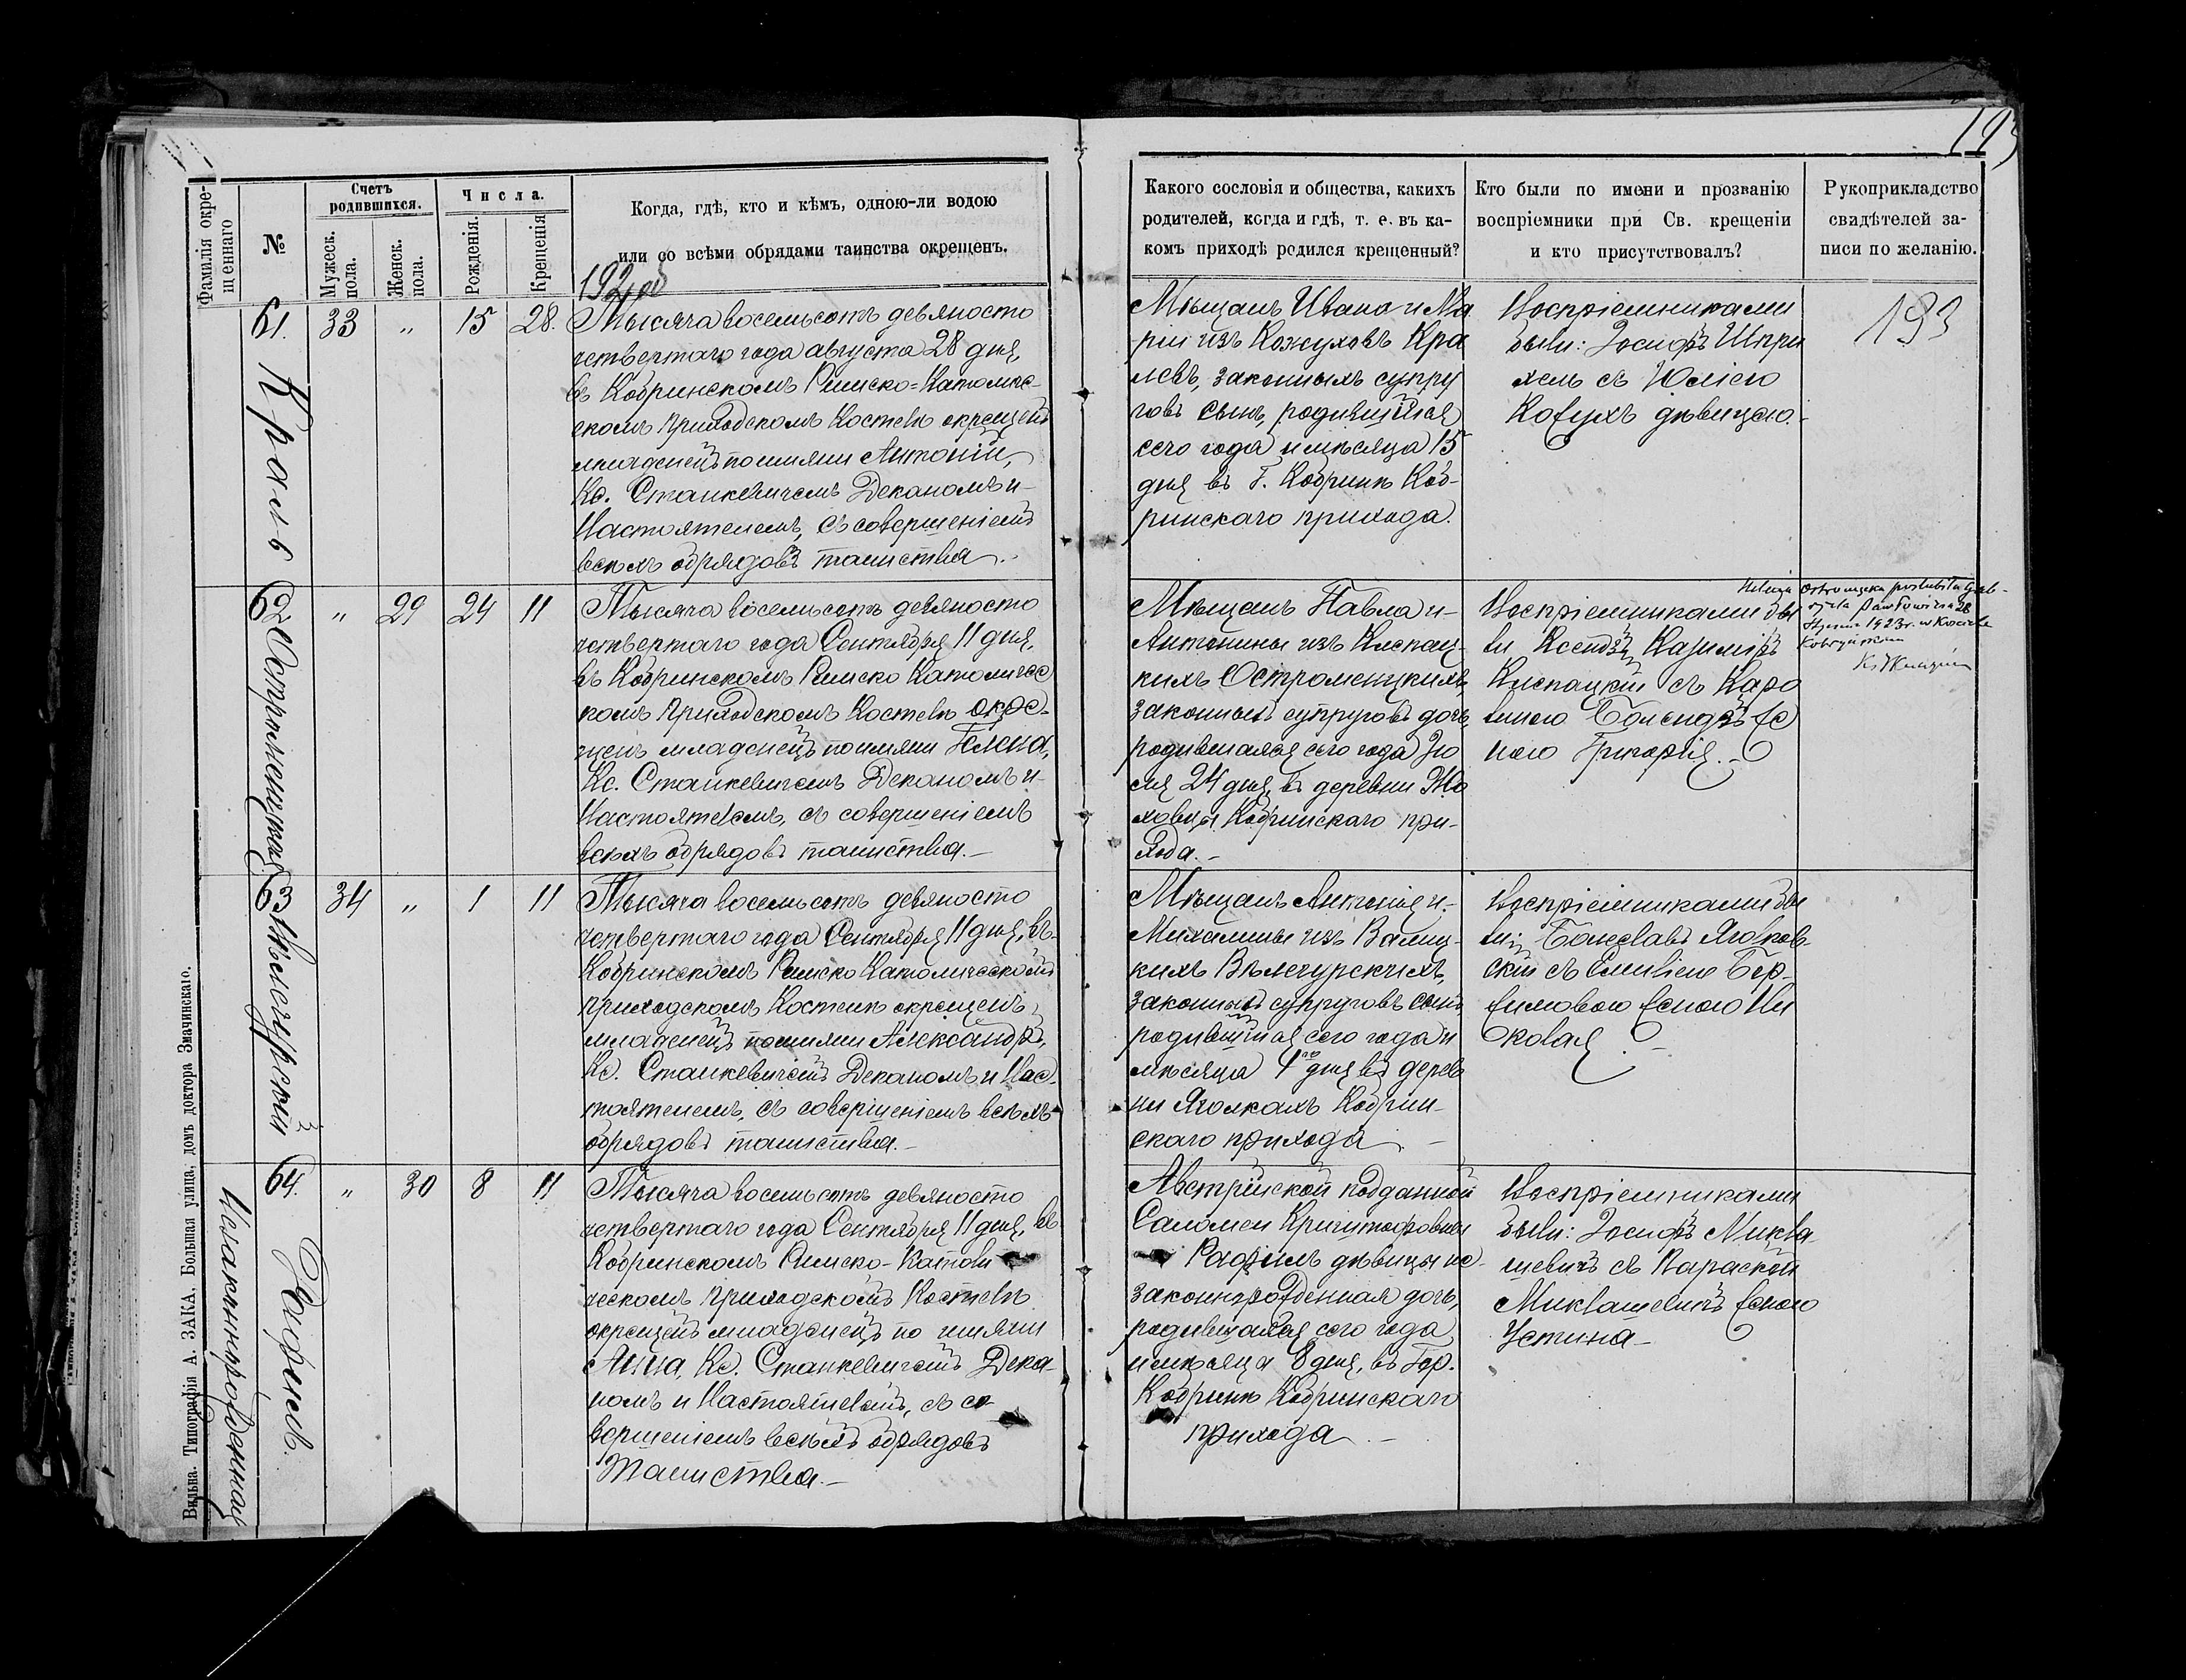 193
Фамилія окре-
щеннаго
№
Счетъ
родившихся.
Мужеск.
пола.
Женск.
пола.
Числа.
Рожденія.
Крещенія
Когда, гдѣ, кто и кѣмъ, одною-ли водою
или со всѣми обрядами таинства окрещенъ.
Какого сословія и общества, какихъ
родителей, когда и гдѣ, т. е. въ ка-
комъ приходѣ родился крещенный?
Кто были по имени и прозванію
воспріемники при Св. крещеніи
и кто присутствовалъ?
Рукоприкладство
свидѣтелей за-
писи по желанію.
192
61.
Краль
33
"
15
28.
Тысяча восемьсотъ девяносто
четвертаго года августа 28 дня,
въ Кобринскомъ Римско-Католиче-
скомъ приходскомъ Костелѣ окрещенъ
младенецъ по имяни Антоній,
Кс. Станкевичемъ Деканомъ и
Настоятелемъ, съ совершеніемъ
всѣхъ обрядовъ таинства.
Мѣщанъ Ивана и Ма
ріи изъ Кожуховъ Кра
левъ, законныхъ супру
говъ сынъ, родившійся
сего года и мѣсяца 15
дня въ г. Кобринѣ Коб-
ринскаго прихода.
Воспріемниками
были: Іосифъ
съ Юліею
Кожухъ дѣвицею.
193
62
Остроменцкая
"
29
24
11
Тысяча восемьсотъ девяносто
четвертаго года Сентября 11 дня,
въ Кобринскомъ Римско Католичес
комъ приходскомъ Костелѣ окре-
щенъ младенецъ по имяни Гелена,
Кс. Станкевичемъ Деканомъ и
Настоятелемъ, съ совершеніемъ
всѣхъ обрядовъ таинства.-
Мѣщанъ Павла и-
Антонины изъ Клепац-
кихъ Остроменцкихъ,
законныхъ супруговъ дочь,
родившаяся сего года Ію
ля 24 дня, въ деревни
Кобринскаго при-
хода.-
Воспріемниками бы
ли Ксендзъ Казиміръ
Клепацкій съ Каро
линою женою
Григорія.-
Helena Ostromęcka poślubiła Gab-
ryela Pawłowicza 28
Stycznia 1923 r. w Kościele
Kobryńskim
63
34
"
1
11
Тысяча восемьсотъ девяносто
четвертаго года Сентября 11 дня, въ-
Кобринскомъ Римско Католическомъ
приходскомъ Костелѣ окрещенъ
младенецъ по имяни Александръ,
Кс. Станкевичемъ Деканомъ и Нас-
тоятелемъ, съ совершеніемъ всѣхъ
обрядовъ таинства.-
Мѣщанъ Антонія и-
Михалины изъ Валиц-
кихъ Вѣлегурскихъ,
законныхъ супруговъ сынъ,
родившійся сего года и
мѣсяца 1го дня въ дерев
ни Яголкахъ Кобрин-
скаго прихода.
Воспріемниками бы
ли: Болеславъ
съ Емиліею
женою Ни
колая
64.
Рафѣль
Незаконнорожденная
"
30
8
11
Тысяча восемьсотъ девяносто
четвертаго года Сентября 11 дня, въ
Кобринскомъ Римско-Католи
ческомъ приходскомъ Костелѣ
окрещенъ младенецъ по имяни
Анна, Кс. Станкевичемъ Дека-
номъ и Настоятелемъ, съ со-
вершеніемъ всѣхъ обрядовъ
таинства.-
Австрійской подданной
Саломеи Криштофовны
Рафѣль дѣвицы не-
законнорожденная дочь,
родившаяся сего года
и мѣсяца 8 дня, въ Гор.
Кобринѣ Кобринскаго
прихода.-
Воспріемниками
были: Іосифъ Микла-
шевичъ съ Параской
Миклашевичъ женою
Устина-
Вильна. Типографія А. ЗАКА, Большая улица, домъ доктора Змачинскаго.